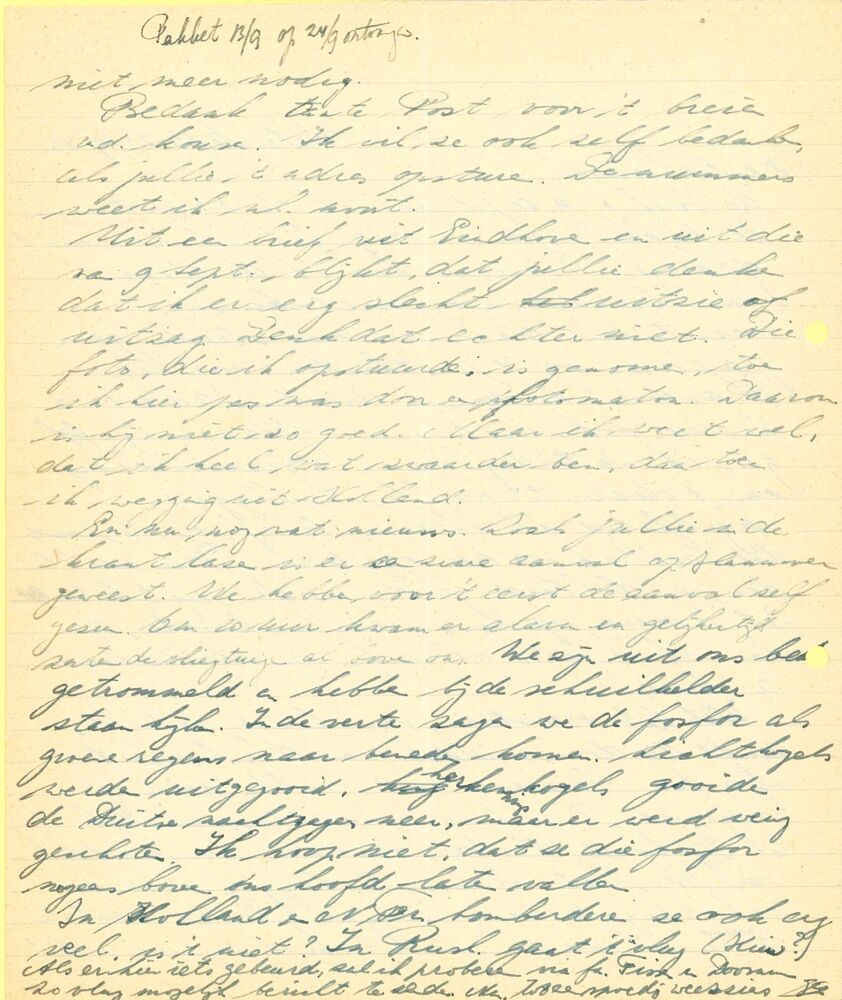 Pakket 13/9 op 24/9 ontvangen.
niet meer nodig.
Bedank tante Post voor 't breien
v.d. kousen. Ik wil ze ook zelf bedanken,
als jullie 't adres opsturen. De nummers
weet ik nl. nooit.
Uit een brief uit Eindhoven en uit die
van 9 Sept. blijkt, dat jullie denken
dat ik er erg slecht uitzie of
uitzag. Denk dat echter niet. Die
foto, die ik opstuurde, is genomen, toen
ik hier pas was door een fotomaton. Daarom
is hij niet zo goed. Maar ik weet wel,
dat ik heel wat zwaarder ben, dan toen
ik wegging uit Holland.
En nu nog wat nieuws. Zoals jullie in de
krant lazen is er een zware aanval op Hannover
geweest. We hebben voor 't eerst de aanval zelf
gezien. Om 10 uur kwam er alarm en gelijkertijd
zaten de vliegtuigen al boven ons. We zijn uit ons bed
getrommeld en hebben bij de schuilkelder
staan kijken. In de verte zagen we de fosfor als
groene regens naar beneden komen. Lichtkogels
werden uitgegooid, herkenningskogels gooide
de Duitse nachtjager neer, maar er werd weinig
geschoten. Ik hoop niet, dat ze die fosfor
nog eens boven ons hoofd laten vallen
In Holland en bombarderen ze ook erg
veel, is 't niet? In Rusl. gaat 't vlug (Kiew?)
Als er hier iets gebeurd, zal ik proberen via fa. en Doorn
zo vlug mogelijk bericht te zenden. Nu, tot spoedig weerziens